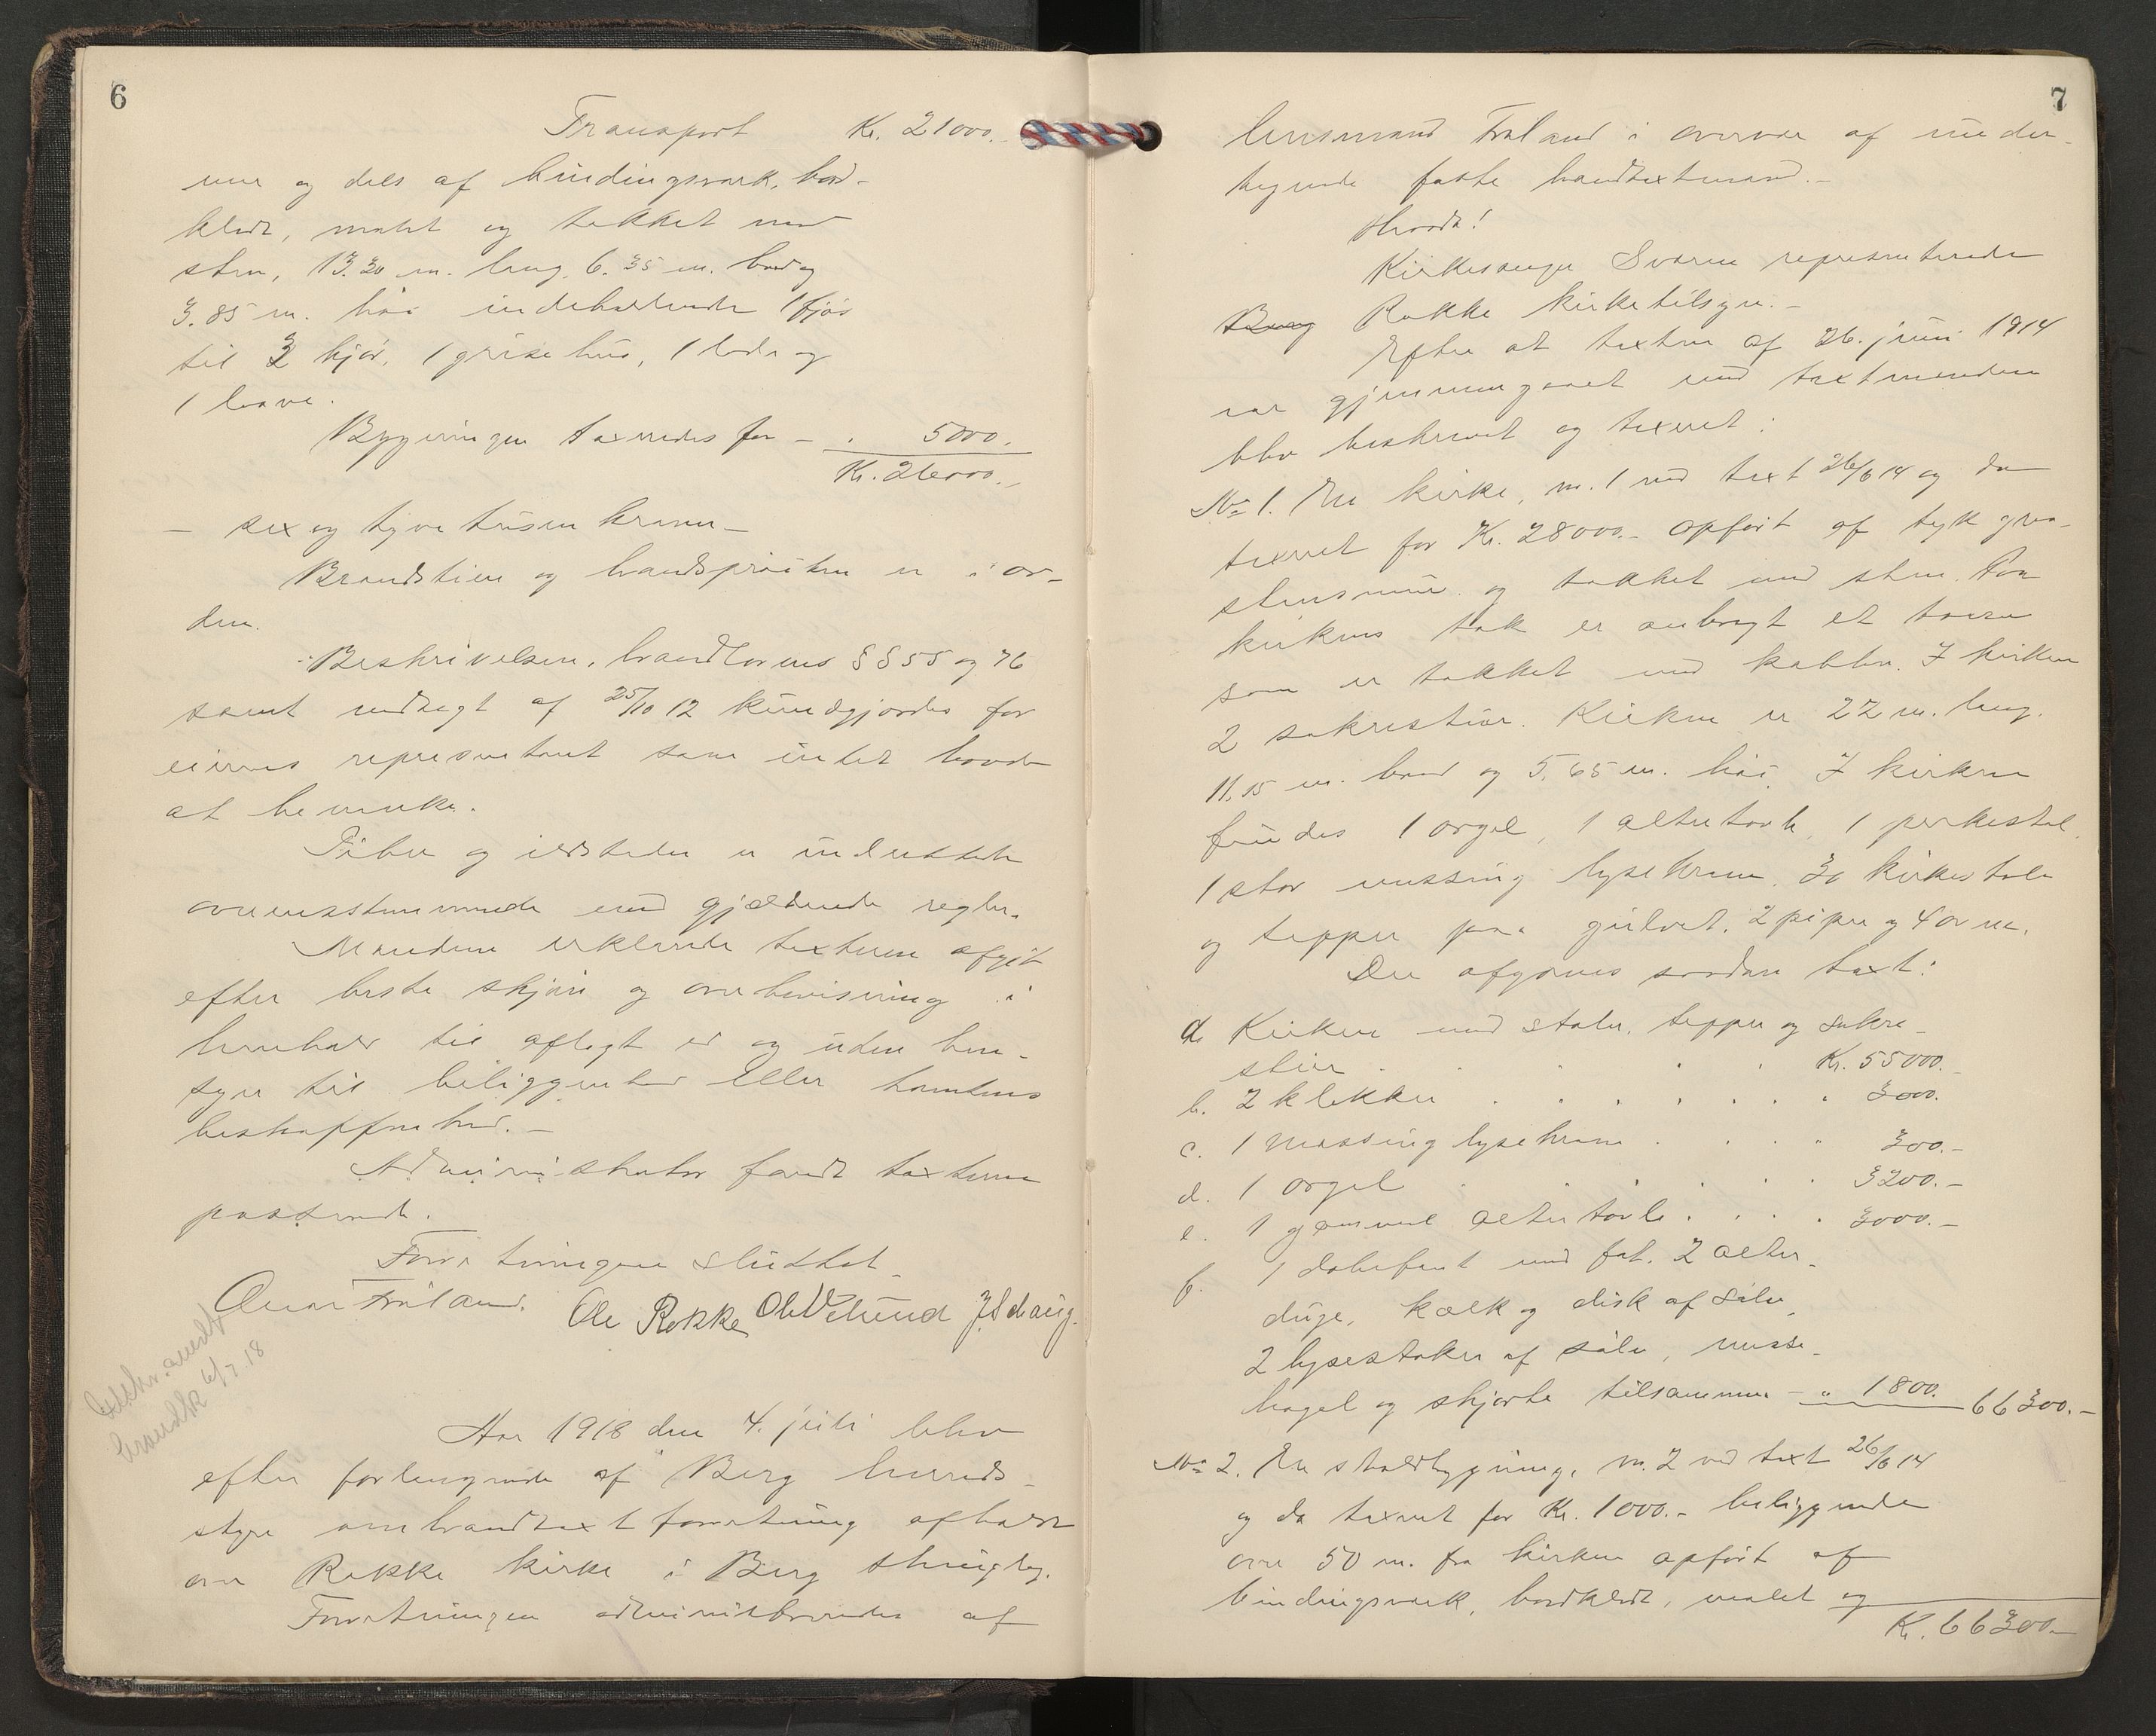 6
Transport Kr. 21000.-
mur og dels af bindingsverk, bord-
klædt, malet og tækket med
sten, 13.20 m. lang, 6.35 m. bred og
3.85 m. høi indeholdende 1 fjøs
til 3 kjør, 1 grisehus, 1 lade og
1 laave.
Bygningen taxeredes for - " 5000.
Kr. 26000.-
- sex og tyve tusen kroner -
Brandstien og brandsprøiten er i or-
den.
Beskrivelsen, brandlovens §§ 55 og 76
samt vedtægt af 25/10 12 kundgjordes for
eierens representant som intet havde
at bemerke.
Piber og ildsteder er indrettet
overensstemmende med gjældende regler.
Mændene erklærede taxterne afgit
efter beste skjøn og overbevisning i
henhold til aflagt ed og uden hen-
syn til beliggenhed eller tomtens
beskaffenhed. -
Administrator fandt taxterne
passende.
Forretningen sluttet.
Einar Fråland. Ole Rokke Ole Vilund
Utskr. sendt
brandk 6/7 18
Aar 1918 den 4. juli blev
efter forlangende af Berg herreds-
styre ombrandtaxtforretning afholdt
over Rokke kirke i Berg thinglag.
Forretningen administreredes af
7
lensmand Fråland i overvær af under-
tegnede faste brandtaxtmænd. -
Hvorda!
Kirkesanger Svarem representerede
Berg Rokke kirketilsyn. -
Efter at taxten af 26. juni 1914
var gjennemgaaet med taxtmændene
blev beskrevet og taxeret:
No 1. En kirke, nr. 1 ved taxt 26/6 14 og da
taxeret for Kr. 28000.- opført af tyk graa-
stensmur og tækket med sten. Paa
kirkens tak er anbragt et taarn
som er tækket med kobber. I kirken
2 sakristier. Kirken er 22 m. lang.
11.15 m. bred og 5.65 m. høi. I kirken
findes 1 orgel, 1 altertavle, 1 prækestol,
1 stor messing lysekrone, 30 kirkestole
og tepper paa gulvet. 2 piper og 4 ovne.
Der afgaves saadan taxt:
a. Kirken med stoler, tepper og sakri-
stier . . . . . Kr. 55000.-
b. 2 klokker . . . . . . " 3000.
c. 1 messing lysekrone . . . " 300.-
d. 1 orgel . . . . . . 3200.-
e. 1 gammel altertavle . . . . 3000.-
f. 1 døbefont med fat. 2 alter-
duge, kalk og disk af sølv,
2 lysestaker af sølv, messe-
hagel og skjorte tilsammen - " 1800. 66300.-
No 2. En staldbygning, nr. 2 ved taxt 26/6 14
og da taxeret for Kr. 1000.- beliggende
over 50 m. fra kirken opført af
bindingsverk, bordklædt, malet og
Kr. 66300.-